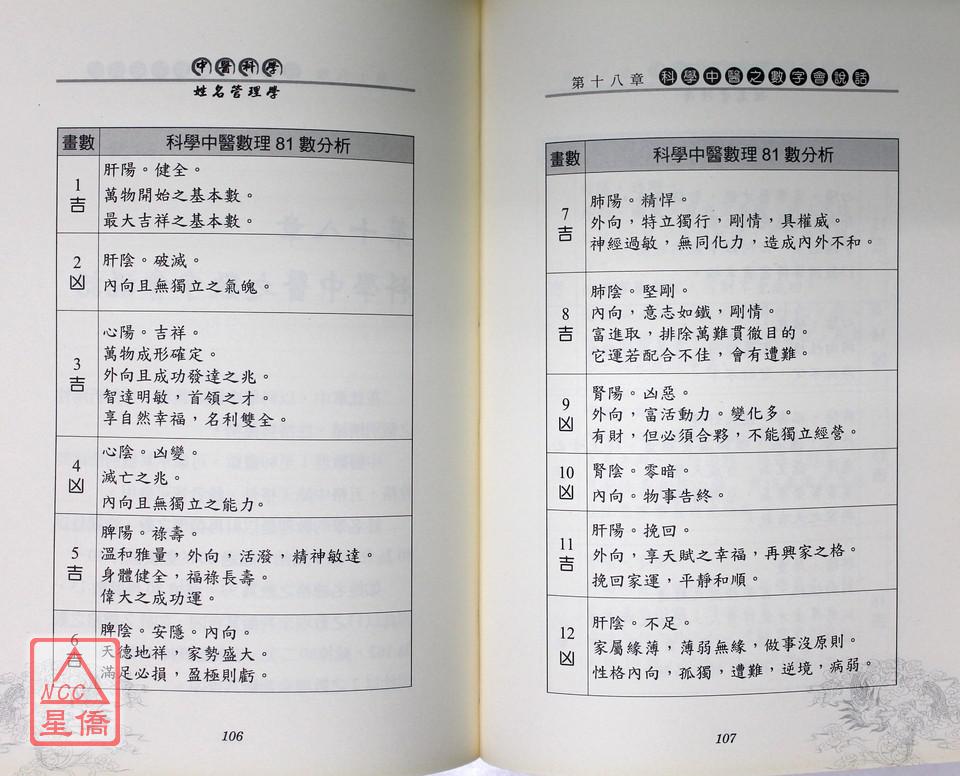 中醫科學
姓名管理學
畫數 科學中醫數理81數分析
1
吉
肝陽。健全。
萬物開始之基本數。
最大吉祥之基本數。
2
凶
肝陰。破滅。
內向且無獨立之氣魄。
3
吉
心陽。吉祥。
萬物成形確定。
外向且成功發達之兆。
智達明敏，首領之才。
享自然幸福，名利雙全。
4
凶
心陰。凶變。
滅亡之兆。
內向且無獨立之能力。
5
吉
脾陽。祿壽。
溫和雅量，外向，活潑，精神敏達。
身體健全，福祿長壽。
偉大之成功運。
6
吉
脾陰。安隱。內向。
天德地祥，家勢盛大。
滿足必損，盈極則虧。
NCC
星僑
106
第十八章 科學中醫之數字會說話
畫數 科學中醫數理81數分析
7
吉
肺陽。精悍。
外向，特立獨行，剛情，具權威。
神經過敏，無同化力，造成內外不和。
8
吉
肺陰。堅剛。
內向，意志如鐵，剛情。
富進取，排除萬難貫徹目的。
它運若配合不佳，會有遭難。
9
凶
腎陽。凶惡。
外向，富活動力。變化多。
有財，但必須合夥，不能獨立經營。
10
凶
腎陰。零暗。
內向。物事告終。
11
吉
肝陽。挽回。
外向，享天賦之幸福，再興家之格。
挽回家運，平靜和順。
12
凶
肝陰。不足。
家屬緣薄，薄弱無緣，做事沒原則。
性格內向，孤獨，遭難，逆境，病弱。
107